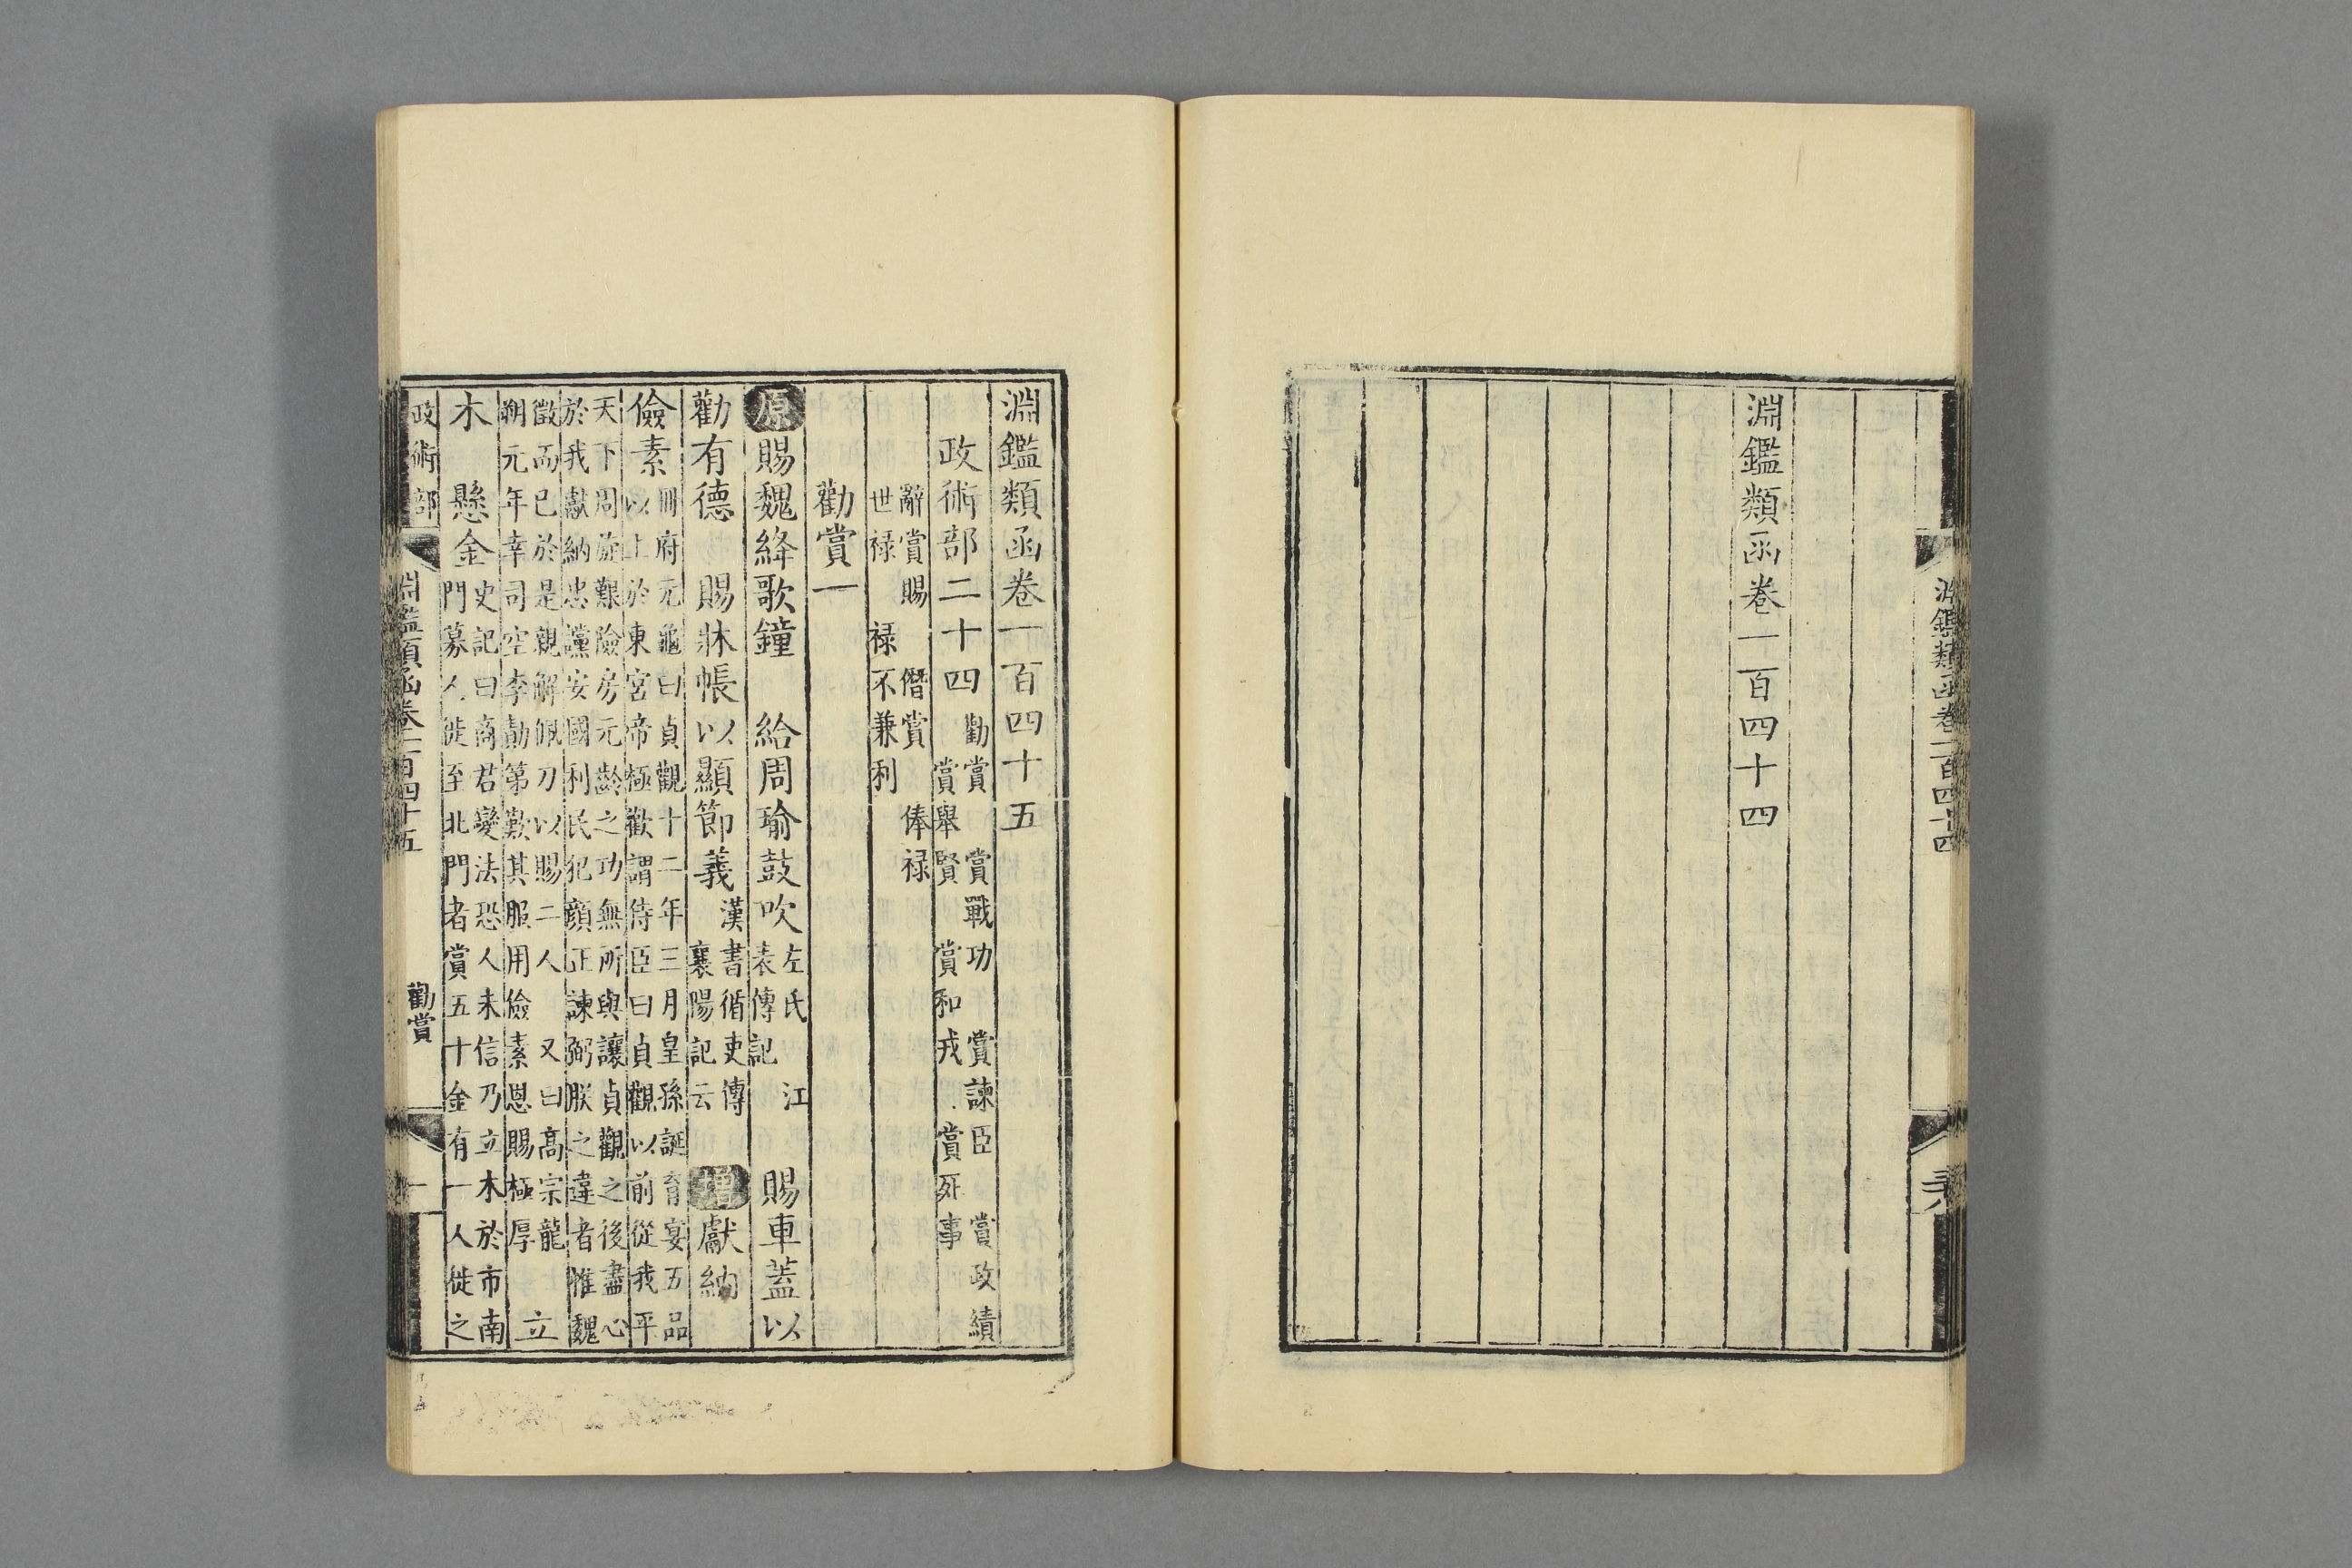 淵鑑類函卷一百四十四
淵鑑類函卷一百四十四
淵鑑類函卷一百四十五
政術部二十四
勸賞 賞戰功 賞諫臣 賞政績
賞舉賢 賞和戎 賞死事
辭賞賜 僭賞 俸禄
世禄 禄不兼利
勸賞一
原賜魏絳歌鐘 給周瑜鼓吹
左氏 江
表傳記
賜車蓋以
勸有德 賜牀帳以顯節義
漢書循吏傳
襄陽記云
增獻納
儉素
冊府元龜曰貞觀十二年三月皇孫誕育宴五品
以上於東宮帝極歡謂侍臣曰貞觀以前從我平
天下周旋艱險房元齡之功無所與讓貞觀之後盡心
於我獻納忠讜安國利民犯顏正諫弼朕之違者惟魏
徵而已於是親解佩刀以賜二人 又曰高宗龍
朔元年幸司空李勣第歎其服用儉素恩賜極厚
立
木 懸金
史記曰商君變法恐人未信乃立木於市南
門募人徙至北門者賞五十金有一人徙之
政術部
淵鑑類函卷一百四十五
勸賞
一